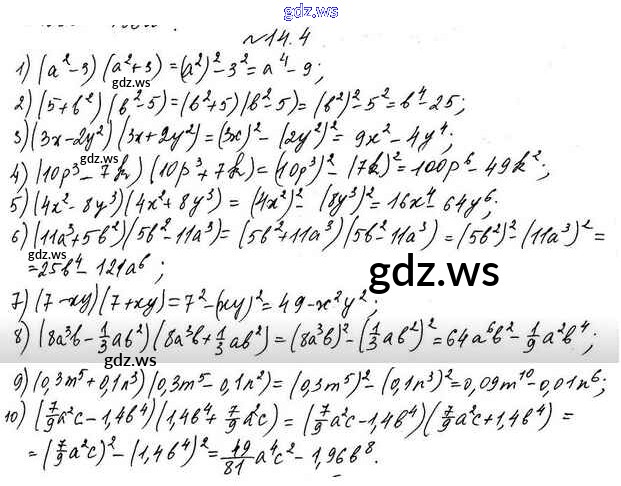 gdz.ws
№14.4
1) (a²-3)(a²+3)=(a²)²-3²=a⁴-9;
2) (5+b²)(b²-5)=(b²+5)(b²-5)=(b²)²-5²=b⁴-25;
3) (3x-2y²)(3x+2y²)=(3x)²-(2y²)²=9x²-4y⁴;
gdz.ws
4) (10p³-7k)(10p³+7k)=(10p³)²-(7k)²=100p⁶-49k²;
5) (4x²-8y³)(4x²+8y³)=(4x²)²-(8y³)²=16x⁴-64y⁶;
6) (11a³+5b²)(5b²-11a³)=(5b²+11a³)(5b²-11a³)=(5b²)²-(11a³)²=
=25b⁴-121a⁶;
gdz.ws
7) (7-xy)(7+xy)=7²-(xy)²=49-x²y²;
8) (8a³b-1/3ab²)(8a³b+1/3ab²)=(8a³b)²-(1/3ab²)²=64a⁶b²-1/9a²b⁴;
gdz.ws
9) (0,3m⁵+0,1n³)(0,3m⁵-0,1n²)=(0,3m⁵)²-(0,1n³)²=0,09m¹⁰-0,01n⁶;
10) (7/9a²c-1,4b⁴)(1,4b⁴+7/9a²c)=(7/9a²c-1,4b⁴)(7/9a²c+1,4b⁴)=
=(7/9a²c)²-(1,4b⁴)²=49/81a⁴c²-1,96b⁸.
gdz.ws